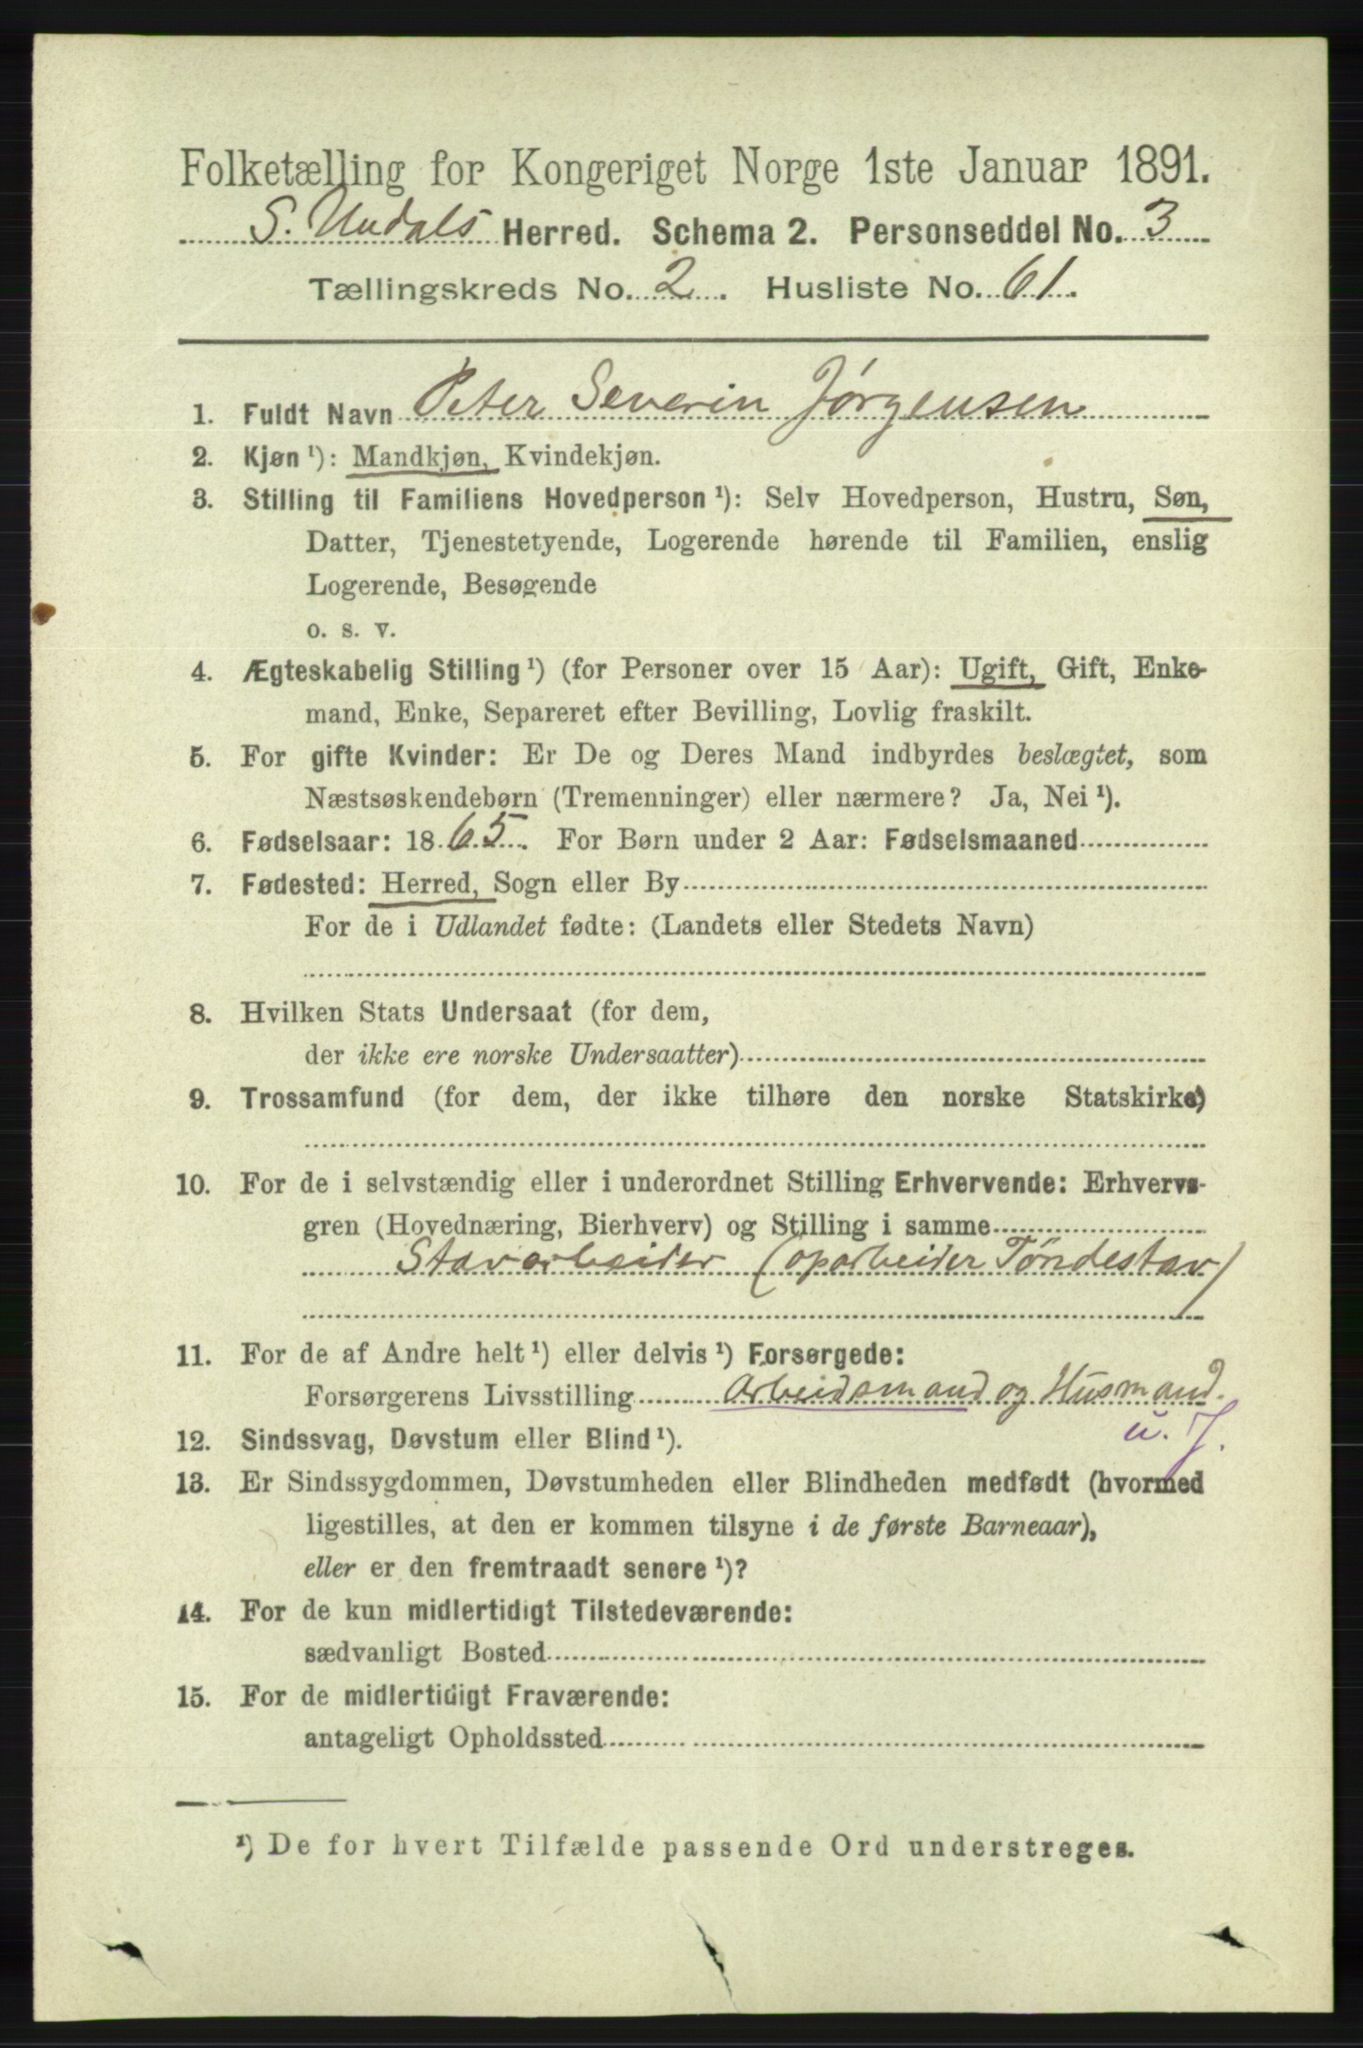 Folketælling for Kongeriget Norge 1ste Januar 1891.
S. Undals Herred. Schema 2. Personseddel No. 3
Tællingskreds No. 2. Husliste No. 61.
1. Fuldt Navn Peter Severin Jørgensen
2. Kjøn ¹): Mandkjøn, Kvindekjøn.
3. Stilling til Familiens Hovedperson ¹): Selv Hovedperson, Hustru, Søn,
Datter, Tjenestetyende, Logerende hørende til Familien, enslig
Logerende, Besøgende
o. s. v.
4. Ægteskabelig Stilling ¹) (for Personer over 15 Aar): Ugift, Gift, Enke-
mand, Enke, Separeret efter Bevilling, Lovlig fraskilt.
5. For gifte Kvinder: Er De og Deres Mand indbyrdes beslægtet, som
Næstsøskendebørn (Tremenninger) eller nærmere? Ja, Nei ¹).
6. Fødselsaar: 1865. For Børn under 2 Aar: Fødselsmaaned
7. Fødested: Herred, Sogn eller By
For de i Udlandet fødte: (Landets eller Stedets Navn)
8. Hvilken Stats Undersaat (for dem,
der ikke ere norske Undersaatter)
9. Trossamfund (for dem, der ikke tilhøre den norske Statskirke)
10. For de i selvstændig eller i underordnet Stilling Erhvervende: Erhvervs-
gren (Hovednæring, Bierhverv) og Stilling i samme
Stavarbeider (oparbeider Tøndestav)
11. For de af Andre helt ¹) eller delvis ¹) Forsørgede:
Forsørgerens Livsstilling Arbeidsmand og Husmand.
u. J.
12. Sindssvag, Døvstum eller Blind ¹).
13. Er Sindssygdommen, Døvstumheden eller Blindheden medfødt (hvormed
ligestilles, at den er kommen tilsyne i de første Barneaar),
eller er den fremtraadt senere ¹)?
14. For de kun midlertidigt Tilstedeværende:
sædvanligt Bosted
15. For de midlertidigt Fraværende:
antageligt Opholdssted
¹) De for hvert Tilfælde passende Ord understreges.